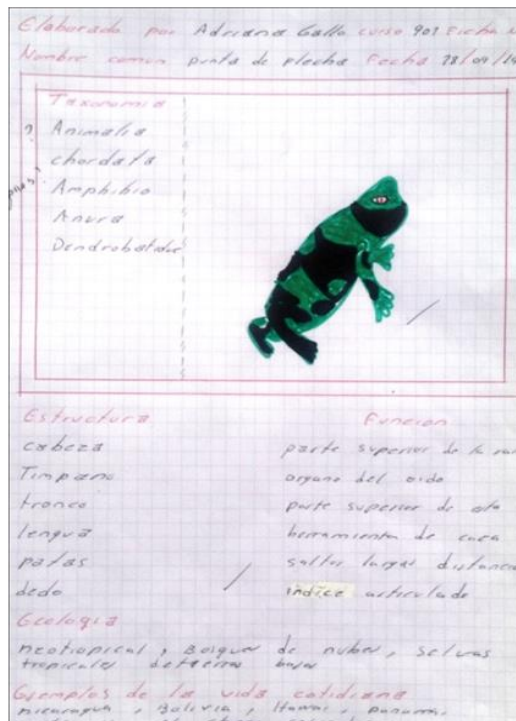 Elaborado por Adriana Gallo curso 901 Ficha
Nombre comun punta de flecha Fecha 28/09/
Taxonomia
? Animalia
chordata
Amphibia
Anura
Dendrobatidae
Estructura Funcion
cabeza parte superior de la
Timpano organo del oido
tronco parte superior de
lengua herramienta de caza
patas saltar largas distancia
dedo indice articulado
Geologia
neotropical, Bosques de nubes, selvas
tropicales de tierras bajas
Ejemplos de la vida cotidiana
nicaragua, Bolivia, Hawai, panama,